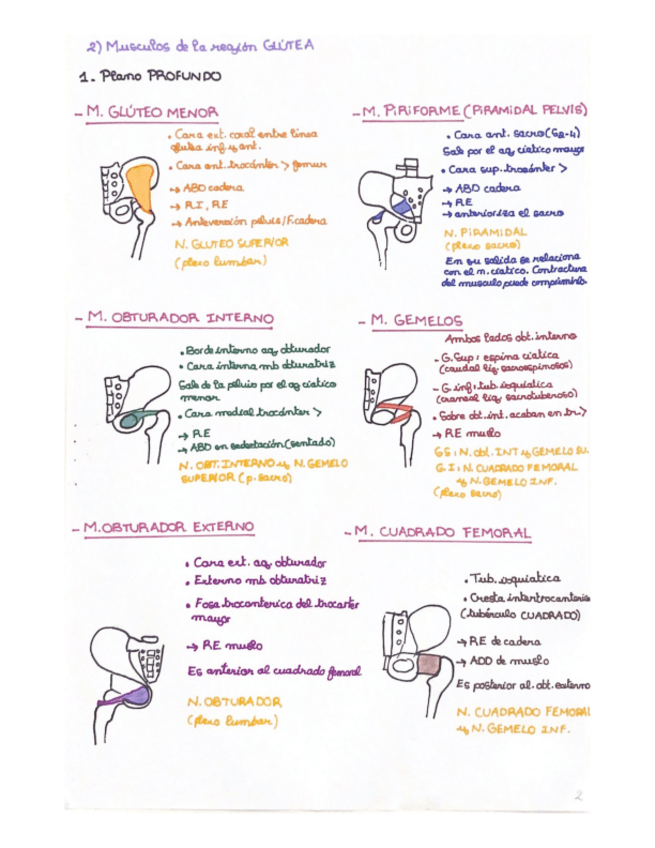 2) Musculos de la región GLÚTEA
1. Plano PROFUNDO
- M. GLÚTEO MENOR
• Cara ext. coxal entre línea
glútea inf. y ant.
• Cara ant. trocánter > femur
→ ABD cadera
→ RI, RE
→ Anteversión pelvis/F. cadera
N. GLUTEO SUPERIOR
(plexo lumbar)
- M. PIRIFORME (PIRAMIDAL PELVIS)
• Cara ant. sacro (S2-4)
Sale por el ag. ciatico mayor
• Cara sup. trocánter >
→ ABD cadera
→ RE
→ anterioriza el sacro
N. PIRAMIDAL
(plexo sacro)
En su salida se relaciona
con el n. ciatico. Contractura
del musculo puede comprimirlo
- M. OBTURADOR INTERNO
• Borde interno ag. obturador
• Cara interna mb obturatriz
Sale de la pelvis por el ag ciatico
menor
• Cara medial trocánter >
→ RE
→ ABD en sedestación (sentado)
N. OBT. INTERNO y N. GEMELO
SUPERIOR (p. sacro)
- M. GEMELOS
Ambos lados obt. interno
- G. Sup: espina ciatica
(caudal lig. sacroespinoso)
- G. inf: tub. isquiatica
(craneal lig. sacrotuberoso)
• Sobre obt. int. acaban en tr. >
→ RE muslo
GS: N. obt. INT y GEMELO SU.
G. I: N. CUADRADO FEMORAL
y N. GEMELO INF.
(plexo sacro)
- M. OBTURADOR EXTERNO
• Cara ext. ag. obturador
• Externo mb obturatriz
• Fosa trocanterica del trocarter
mayor
→ RE muslo
Es anterior al cuadrado femoral
N. OBTURADOR
(plexo lumbar)
- M. CUADRADO FEMORAL
• Tub. isquiatica
• Cresta intertrocanterica
(tubérculo CUADRADO)
→ RE de cadera
→ ADD de muslo
Es posterior al. obt. externo
N. CUADRADO FEMORAL
y N. GEMELO INF.
2